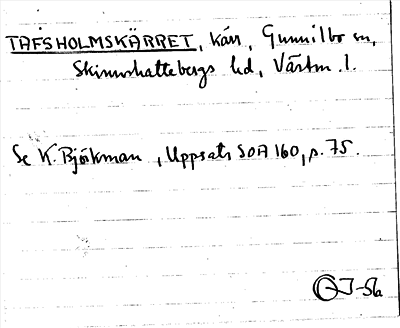 TAFSHOLMSKÄRRET, kärr, Gunnilbo sn,
Skinnskattebergs hd, Västm. l.
Se K. Björkman, Uppsats SOA 160, s. 75.